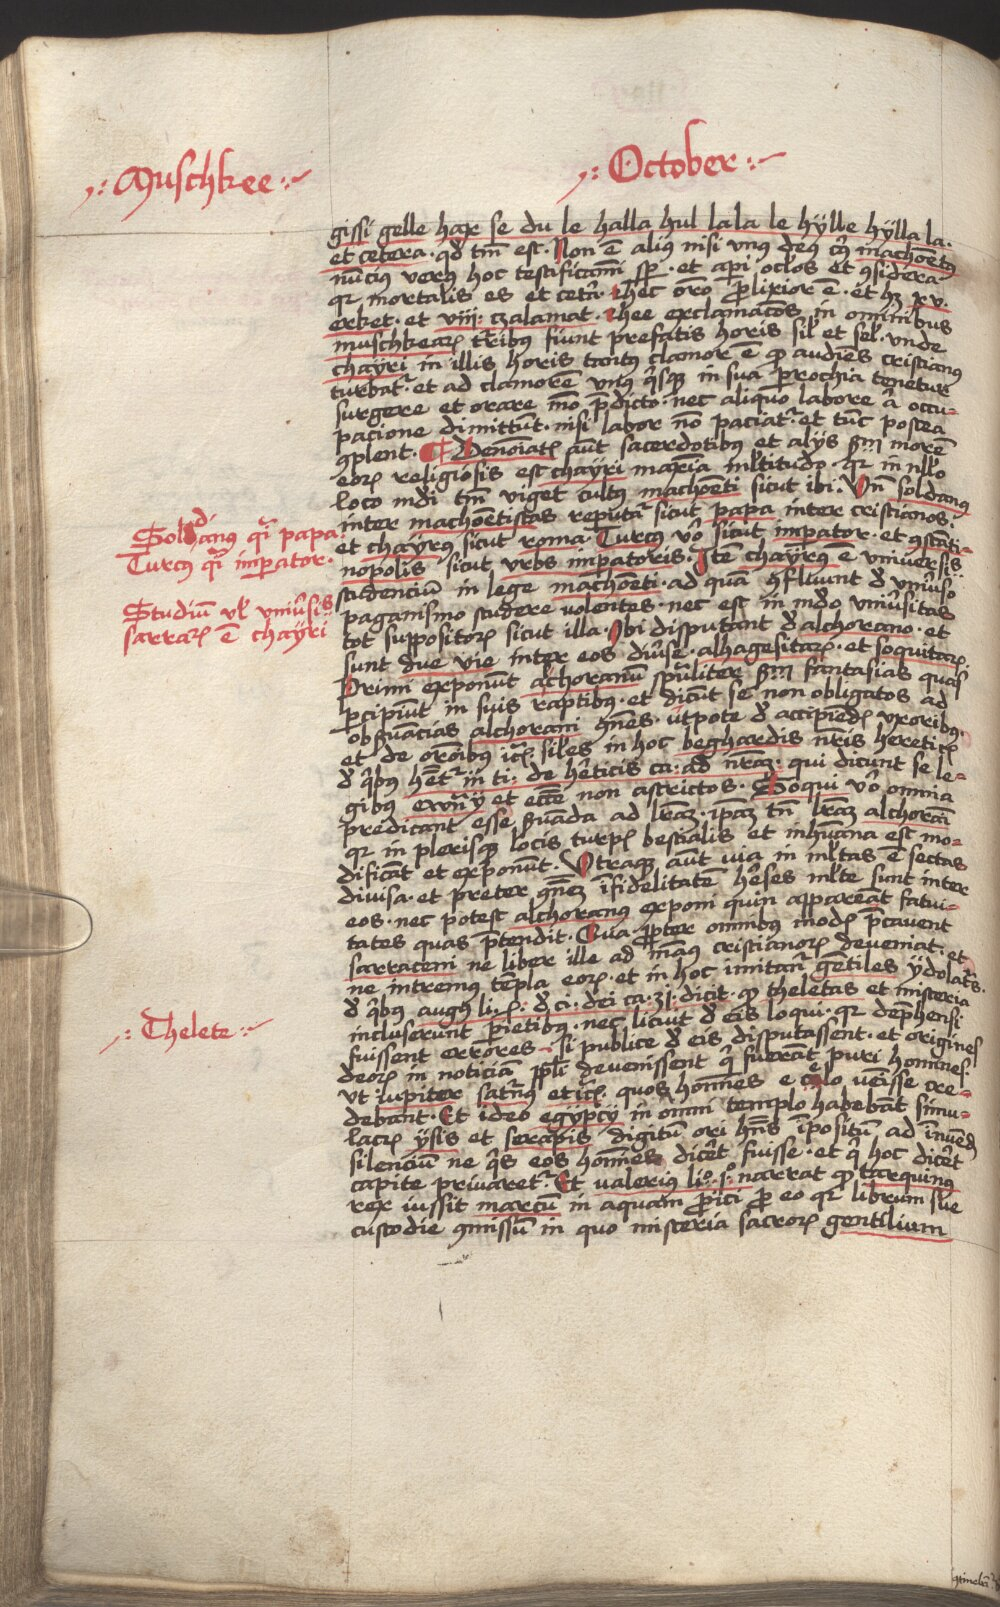 Muschkee
October
gissi gelle hax se du le halla hul la la le hÿlle hÿlla la.
et cetera. qd tm̄ est. Non ē aliꝰ nisi vnꝰ deꝰ cū machōetꝰ
nūciꝰ verꝰ hoc testificami sp. et api oclos et ꝯsidera
qr mortalis es et cetā. Hec orō plixior ē. et hꝫ xv.
erket. et viij. czalamat. Hee exclamacōes in omnibus
muschkearꝫ tribꝰ fiunt prefatis horis sil et sel. vnde
chaÿri in illis horis tantꝰ clamor ē qd audiēs cristianꝰ
turbatʳ. et ad clamorē vnꝰ qͥsqꝫ in sua prochia tenetur
surgere et orare mō pdicto. nec aliquo labore a occu-
pacione dimittūt. nisi labor nō paciatʳ. et tūc postea
ꝯplent. Denoīatꝫ aūt sacerdotibꝰ et alÿs scdm morē
eorꝫ religiosis est chaÿri maxīa mltitudo. qr in nllo
loco mdi tm̄ viget cultꝰ machōeti sicut ibi. Vn̄ soldanꝰ
inter machōetistas reputatʳ sicut papa inter cristianos.
et chaÿrꝰ sicut roma. Turcꝰ vō sicut impator. et ꝯstāti-
nopolis sicut vrbs impatoris. Itē chaÿrꝰ ē vniversis
studenciū in lege machōeti. ad quā ꝯfluunt d vnīuso
paganismo studere volentes. nec est in mdo vniūsitas
tot suppositorꝫ sicut illa. Ibi disputant d alchorano. et
sunt due vie inter eos diūse. alhagesitarꝫ. et soquitarꝫ.
Primi exponūt alchoranū spūaliter scdm fantasias quas
pcipiūt in suis raptibꝰ. et dicūt se non obligatos ad
obsuācias alchorani ꝯnes. vtpote d accipiēdꝫ vxoribꝰ.
et de orōibus icꝫ. siles in hoc beghardis nrīs hereticꝫ
d qͥbꝰ hētʳ in ti. de hēticis ca. ad nrām. qui dicunt se le-
gibꝰ ewn̄ÿ et eccē non astrictos. Soqui vō omnia
predicant esse suāda ad lrām. ipam tn̄ lrām alchorai
qr in plerisqꝫ locis turpꝫ bestialis et inhūana est mo-
dificāt et exponūt. Vtraqꝫ aūt via in mltas ē sectas
diuisa. et preter gn̄em īfidelitatē hēses mlte sunt inter
eos. nec potest alchoranꝰ exponi quin appareāt fatui-
tates quas ptendit. Qua ppter omnibus modꝫ pcavent
sarraceni ne liber ille ad manꝰ cristianorꝫ deveniat. et
ne intremꝰ tēpla eorꝫ. et in hoc imitantʳ gētiles ÿdolatʳs.
d qͥbꝰ augꝰ li. x. d ci. dei ca. 31. dicit. qd theletas et misteria
incluserunt pietibꝰ. nec licuit d eis loqui. qr dephensi
fuissent errōres si publice d eis disputassent. et origines
deorꝫ in noticiā ppli devenissent qͥ fuerāt puri homines.
vt iupiter satnꝰ et icꝫ. quos homīes e celo vēisse cre-
debant. Et ideo egÿpcÿ in omni templo habebāt simu-
lacrꝫ ÿsis et serapis digitū ori hn̄s ipositū ad inuēdꝫ
silenciū ne qͥs eos homīes dicēt fuisse. et qͥ hoc dicēt
capite privaretʳ. Et valeriꝰ lio. s. narrat qd tarquinꝰ
rex iussit marcū in aquam pici p eo qr librum sue
custodie ꝯmissū in quo misteria sacrorꝫ gentilium
Soldanꝰ qͥ papa
Turcꝰ qͥ impator.
Studiū vl vniūsis
sarrarꝫ ē chaÿri
Thelete